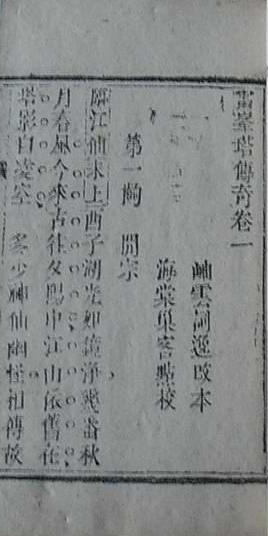 雷峯塔傳奇卷一
岫雲詞逸改本
海棠巢客點校
第一齣 開宗
臨江仙末上西子湖光如鏡淨幾番秋
月春風今來古往夕陽中江山依舊在
塔影自凌空 多少神仙幽怪相傳故